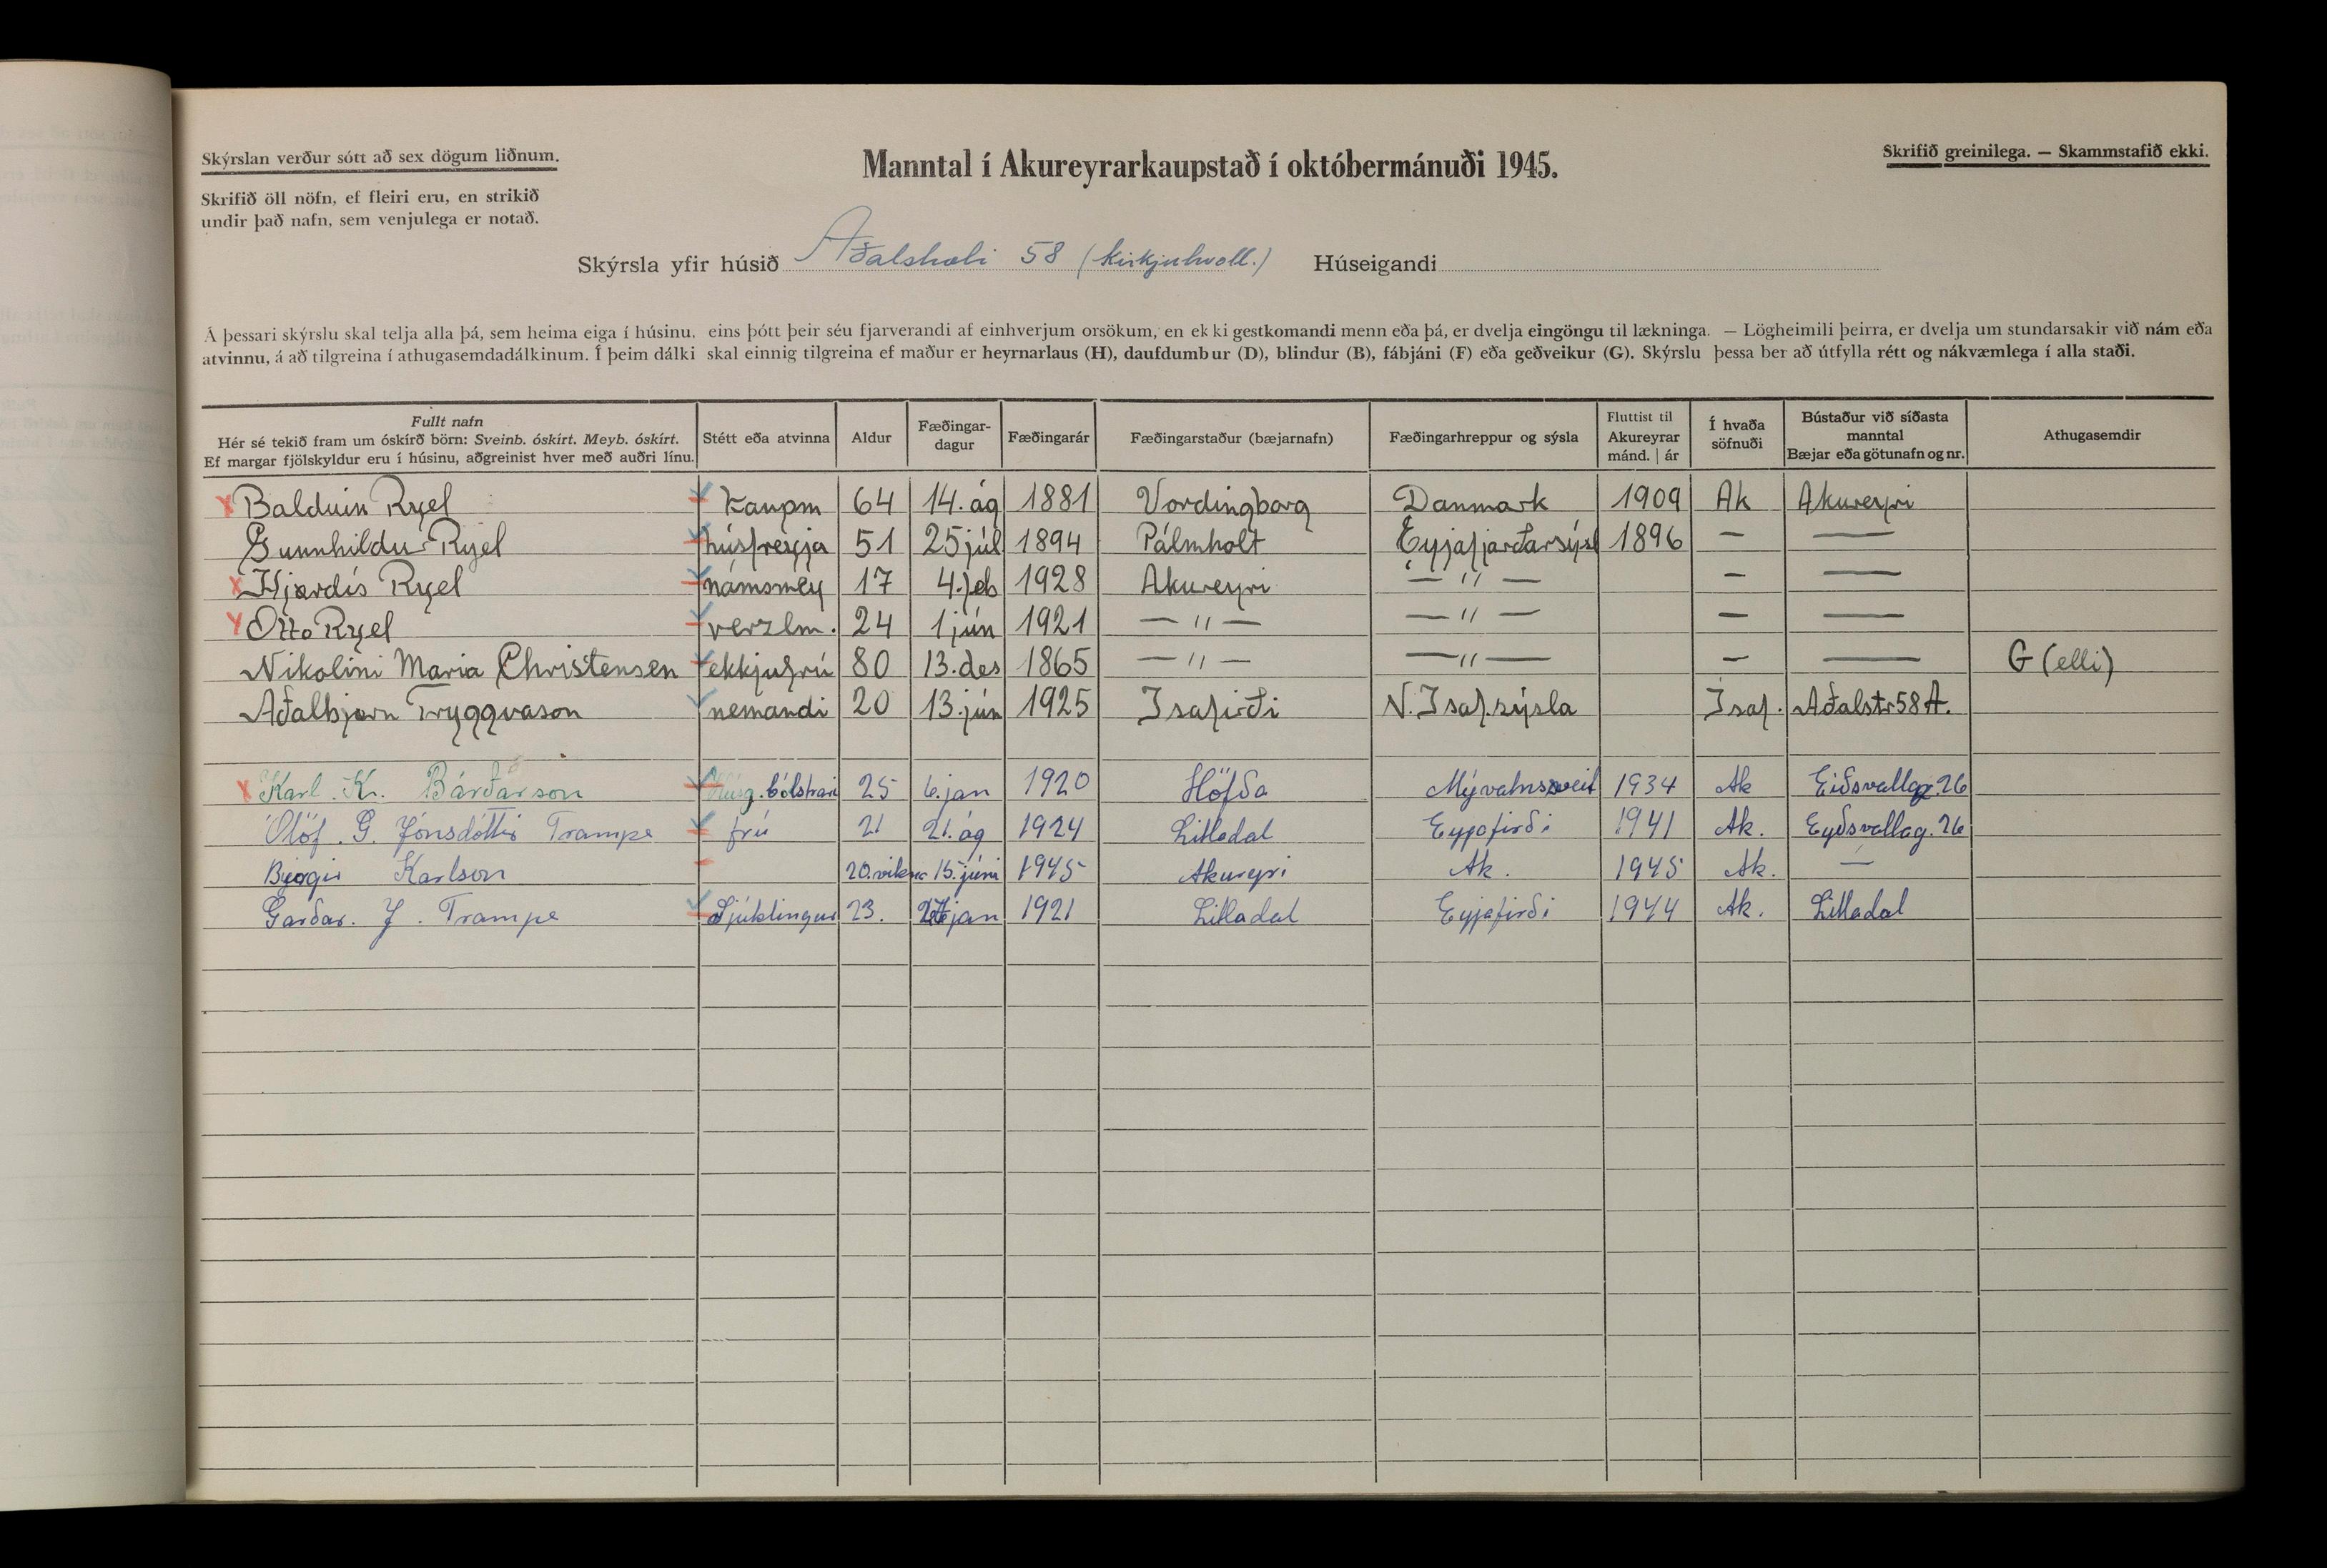 Skýrslan verður sótt að sex dögum liðnum.
Skrifið öll nöfn, ef fleiri eru, en strikið
undir það nafn, sem venjulega er notað.
Manntal í Akureyrarkaupstað í októbermánuði 1945.
Skrifið greinilega. — Skammstafið ekki.
Skýrsla yfir húsið Aðalstræti 58 (Kirkjuhvoll.) Húseigandi
Á þessari skýrslu skal telja alla þá, sem heima eiga í húsinu, eins þótt þeir séu fjarverandi af einhverjum orsökum, en ekki gestkomandi menn eða þá, er dvelja eingöngu til lækninga. — Lögheimili þeirra, er dvelja um stundarsakir við nám eða
atvinnu, á að tilgreina í athugasemdadálkinum. Í þeim dálki skal einnig tilgreina ef maður er heyrnarlaus (H), daufdumbur (D), blindur (B), fábjáni (F) eða geðveikur (G). Skýrslu þessa ber að útfylla rétt og nákvæmlega í alla staði.
Fullt nafn
Hér sé tekið fram um óskírð börn: Sveinb. óskírt. Meyb. óskírt.
Ef margar fjölskyldur eru í húsinu, aðgreinist hver með auðri línu.
Stétt eða atvinna
Aldur
Fæðingar-
dagur
Fæðingarár
Fæðingarstaður (bæjarnafn)
Fæðingarhreppur og sýsla
Fluttist til
Akureyrar
mánd. | ár
Í hvaða
söfnuði
Bústaður við síðasta
manntal
Bæjar eða götunafn og nr.
Athugasemdir
Balduin Ryel kaupm 64 14. ág 1881 Vordingborg Danmark 1909 Ak Akureyri
Gunnhildur Ryel húsfreyja 51 25 júl 1894 Pálmholt Eyjafjarðarsýsl 1896 — —
Hjördís Ryel námsmey 17 4. feb 1928 Akureyri — " — — —
Otto Ryel verzlm. 24 1 jún 1921 — " — — " — — —
Nikolini Maria Christensen ekkjufrú 80 13. des 1865 — " — — " — — — G (elli)
Aðalbjörn Tryggvason nemandi 20 13. jún 1925 Isafirði N. Isaf. sýsla Isaf. Aðalstr 58 A.
Karl. Kr. Bárðarson Húsg. bólstrari 25 6. jan 1920 Höfða Mývatnssveit 1934 Ak Eiðsvallag. 26
Ólöf. G. Jónsdóttir Trampe frú 21 21. ág 1924 Litladal Eyjafirði 1941 Ak. Eyðsvallag. 26
Birgir Karlson 20. vikna 15. júní 1945 Akureyri Ak. 1945 Ak. —
Garðar. J. Trampe Sjúklingur 23. jan 1921 Litladal Eyjafirði 1944 Ak. Litladal